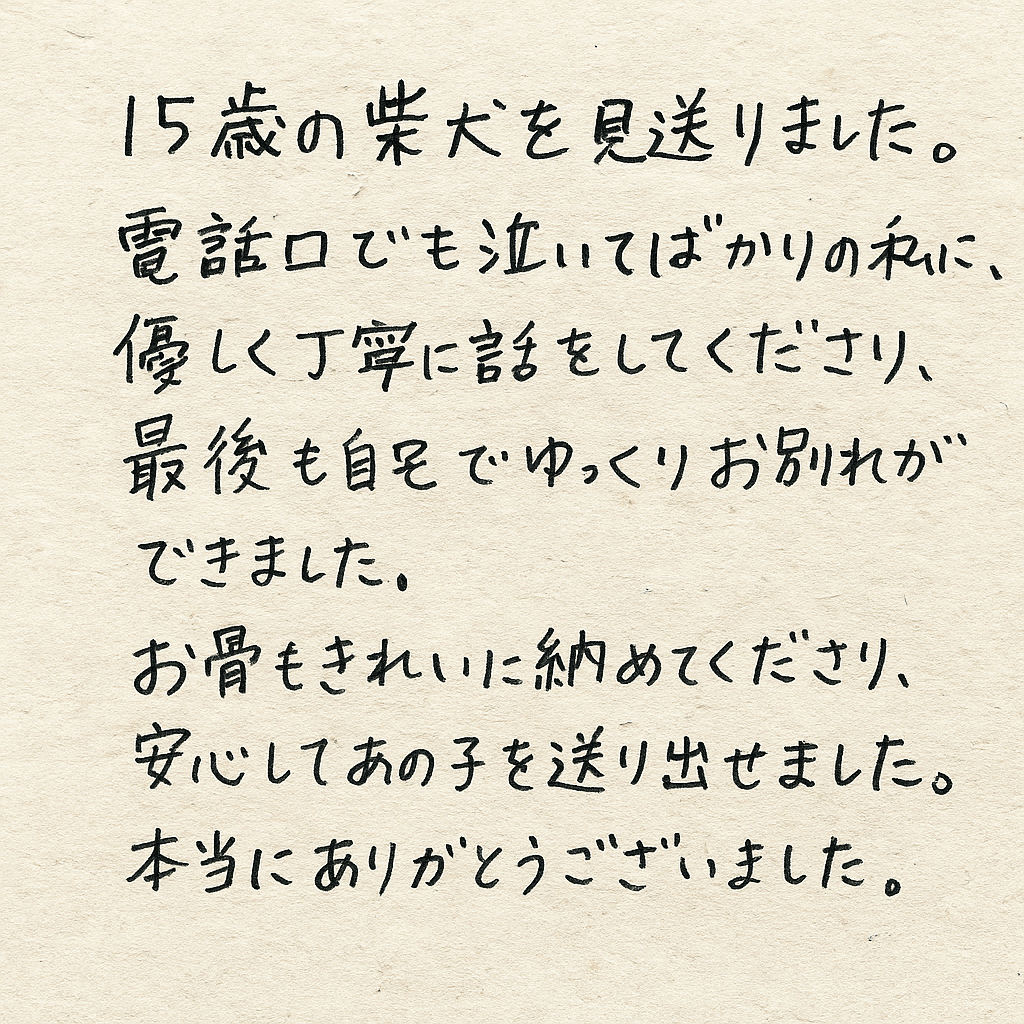 15歳の柴犬を見送りました。
電話口でも泣いてばかりの私に、
優しく丁寧に話をしてくださり、
最後も自宅でゆっくりお別れが
できました。
お骨もきれいに納めてくださり、
安心してあの子を送り出せました。
本当にありがとうございました。